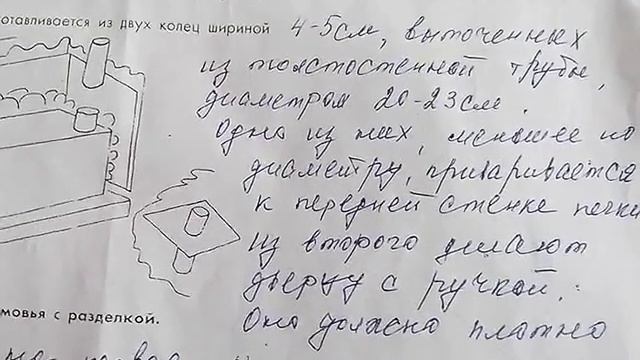 отавливается из двух колец шириной 4-5см, выточенных
из толстостенной трубы,
диаметром 20-23см.
Одно из них, меньшее по
диаметру, приваривается
к передней стенке печки
из второго делают
дверцу с ручкой.
Она должна плотно
мовья с разделкой.